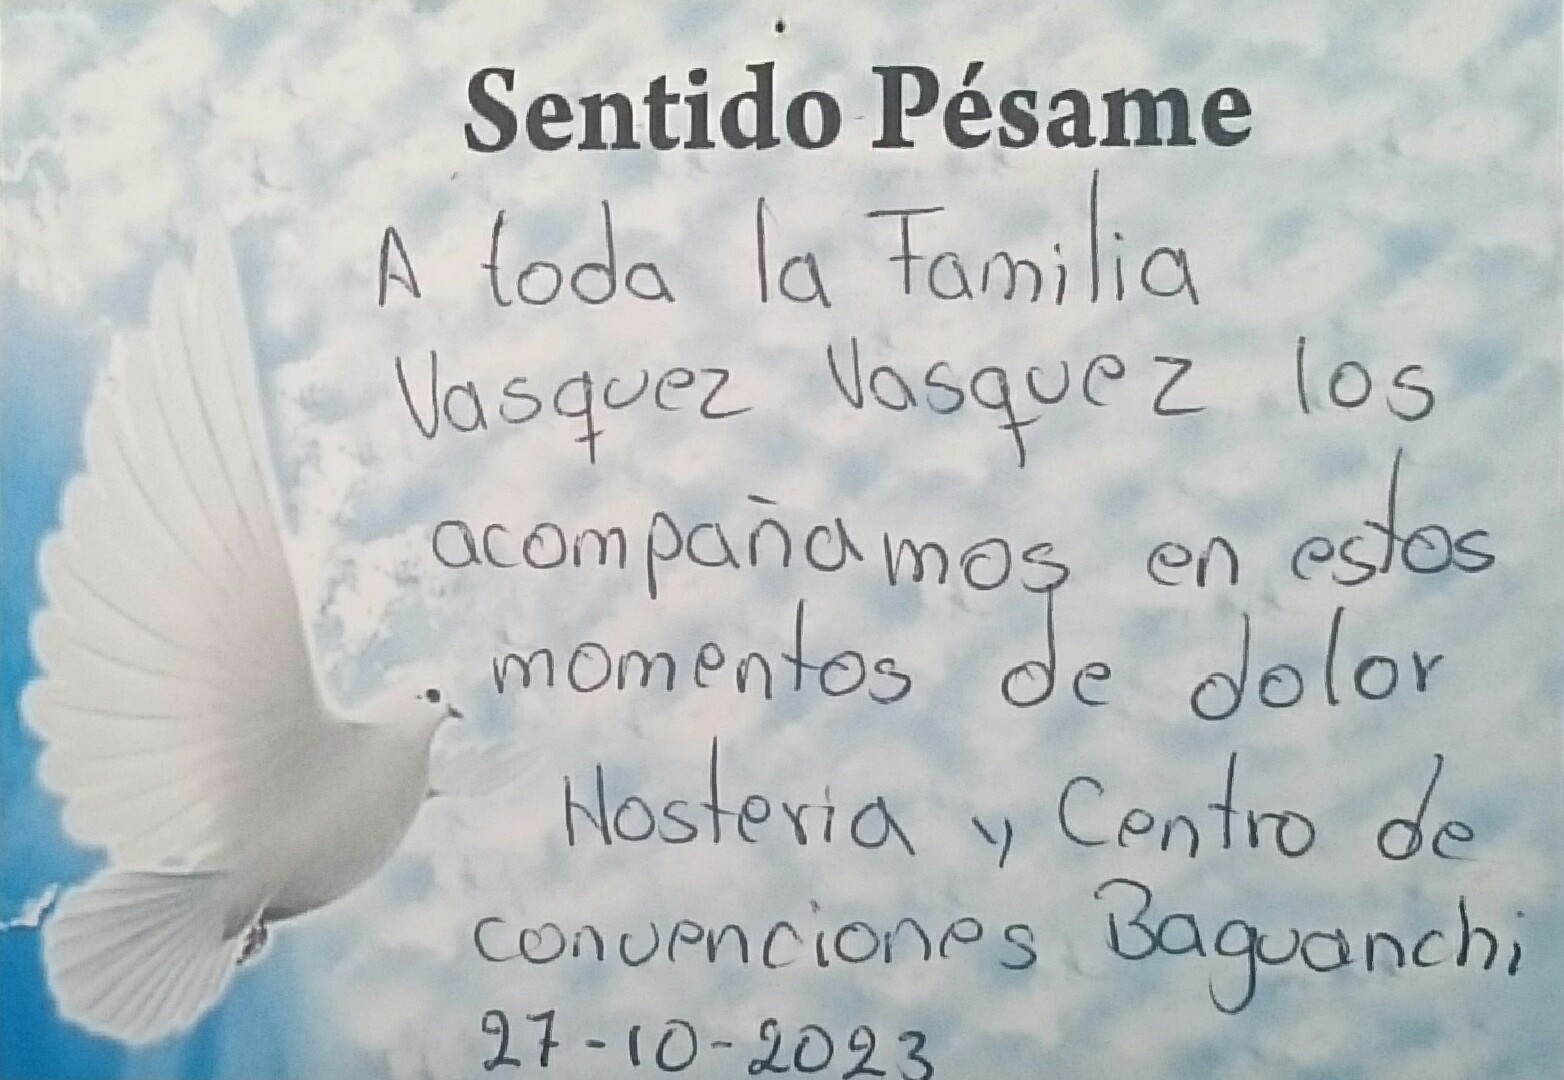 Sentido Pésame
A toda la Familia
Vasquez Vasquez los
acompañamos en estos
momentos de dolor
Hosteria y Centro de
convenciones Baguanchi
27-10-2023